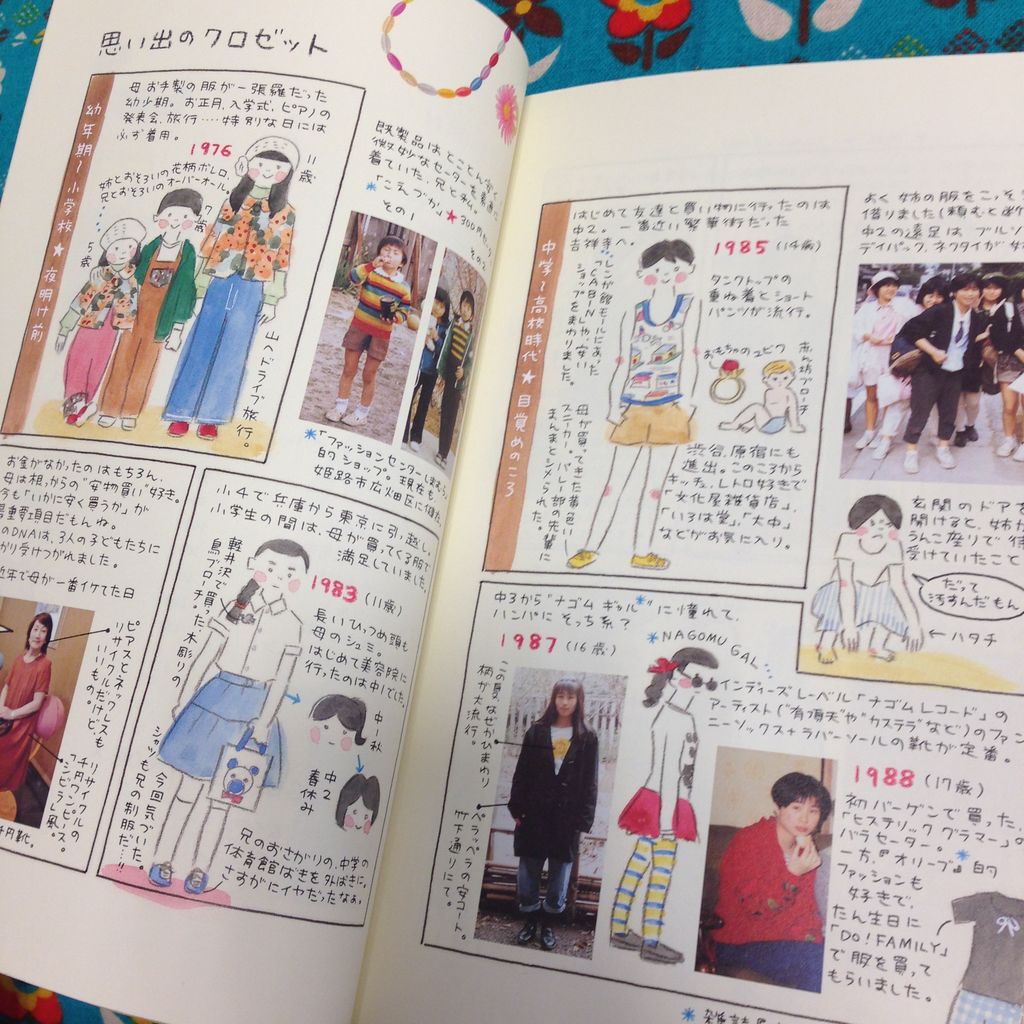 思い出のクロゼット
幼年期〜小学校★夜明け前
母お手製の服が一張羅だった
幼少期。お正月、入学式、ピアノの
発表会、旅行‥‥特別な日には
必ず着用。
1976
姉とおそろいの花柄ボレロ、
兄とおそろいのオーバーオール。
11歳
7歳
5歳
山へドライブ旅行。
既製品はとことん安く。
微妙なセーターを素直に
着ていた、兄と私。
その1
その2
*「ファッションセンター
的ショップ。現在も
姫路市広畑区に健在。
お金がなかったのはもちろん、
母は根っからの"安物買い"好き。
今も"いかに安く買うか"が
重要項目だもんね。
のDNAは、3人の子どもたちに
かり受けつがれました。
近年で母が一番イケてた日
ピアスとネックレスも
リサイクルだけど、
いいもの。
小4で兵庫から東京に引っ越し。
小学生の間は、母が買ってくる服で
満足していました。
1983(11歳)
軽井沢で買った、木彫りの
鳥ブローチ。
長いひっつめ頭も
母のシュミ。
はじめて美容院に
行ったのは中1でした。
中1秋
中2
春休み
今回気づいた。
シャツも兄の制服だ…!!
兄のおさがりの、中学の
体育館ばきを外ばきに。
さすがにイヤだったなぁ。
中学〜高校時代★目覚めのころ
はじめて友達と買い物に行ったのは
中2。一番近い繁華街だった
吉祥寺へ。
1985(14歳)
レンガ館モールにあった
「CABIN」や安い
ショップをまわりました。
タンクトップの
重ね着とショート
パンツが流行。
おもちゃのユビワ
赤ん坊ブローチ
母が買ってきた黄色い
スニーカー。バレー部の先輩に
まんまとシメられた。
渋谷、原宿にも
進出。このころから
キッチュ、レトロ好きで
「文化屋雑貨店」、
「いろは堂」、「大中」
などがお気に入り。
よく姉の服をこっそ
借りました(頼むと断
中2の遠足は ブルゾ
デイパック、ネクタイが
玄関のドアを
開けると、姉が
うんこ座りで待
受けていたこと
だって
汚すんだもん
←ハタチ
中3から"ナゴムギャル"に憧れて、
ハンパにそっち系?
1987(16歳)
*NAGOMU GAL
この夏、なぜかひまわり
柄が大流行。
ペラペラの安コート。
竹下通りにて。
インディーズレーベル「ナゴムレコード」の
アーティスト("有頂天"や"カステラ"など)のファン
ニーソックス+ラバーソールの靴が定番。
1988(17歳)
初バーゲンで買った、
「ヒステリック グラマー」の
バラセーター。
一方、『オリーブ』*的
ファッションも
好きで、
たん生日に
「DO!FAMILY」
で服を買って
もらいました。